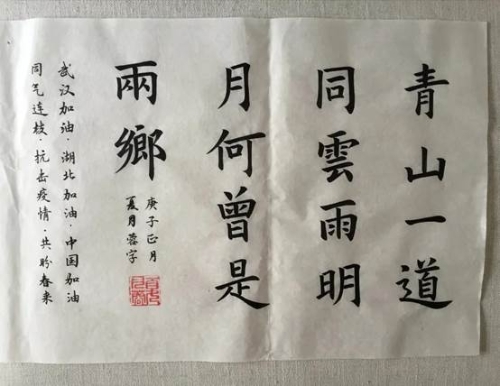 青山一道
同雲雨明
月何曾是
兩鄉
庚子正月
夏月蓉字
武汉加油·湖北加油·中国加油
同气连枝·抗击疫情·共盼春来